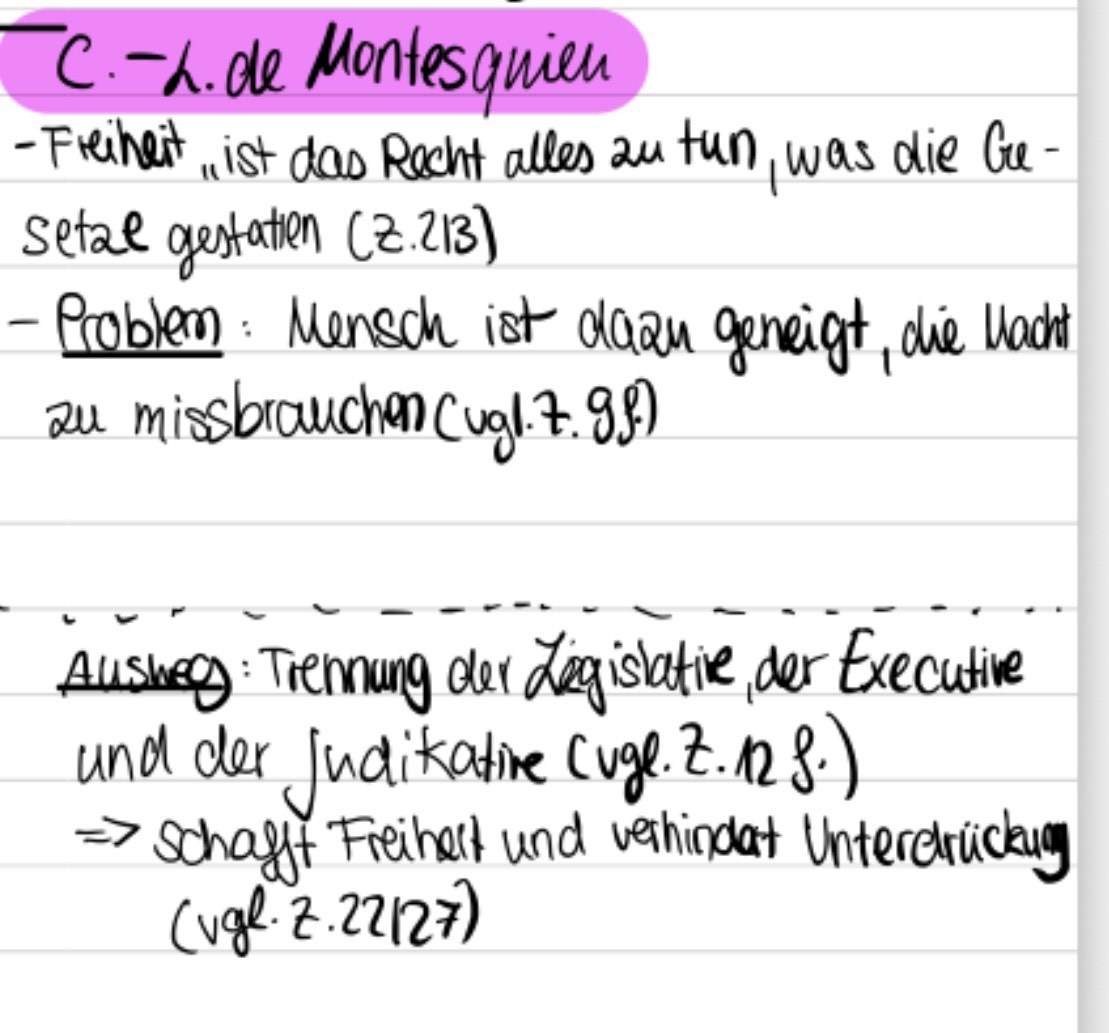 C.-L. de Montesquieu
- Freiheit „ist das Recht alles zu tun, was die Ge-
setze gestatten (Z. 2/3)
- Problem: Mensch ist dazu geneigt, die Macht
zu missbrauchen (vgl. Z. 9 f.)
Ausweg: Trennung der Legislative, der Executive
und der Judikative (vgl. Z. 12 f.)
=> schafft Freiheit und verhindert Unterdrückung
(vgl. Z. 22/27)